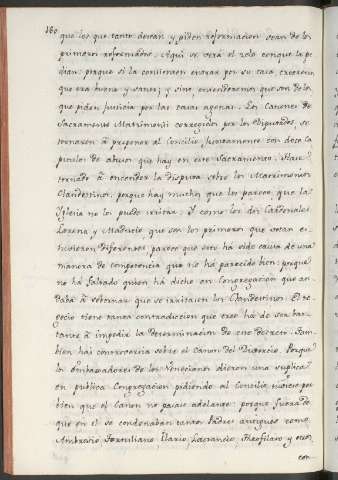 160
que los que tanto desean y piden reformacion sean de los
primeros reformados. Aqui se verá el zelo con que la pe-
dian: porque si la consienten entrar por su casa, creeremos
que era bueno y santo; y sino, entenderemos que son de los
que piden Justicia por las casas agenas. Los Canones de
Sacramento Matrimonii corregidos por los Diputados, se
tornaron à proponer al Concilio juntamente con doce Ca-
pitulos de abusos que hay en este Sacramento. Hase
tornado à encender la disputa sobre los Matrimonios
Clandestinos, porque hay muchos que les parece, que la
Iglesia no los puede irritar. Y como los dos Cardenales
Lorena y Madrucio que son los primeros que votan es-
tuvieron diferentes, parece que esto há sido causa de una
manera de competencia que no há parecido bien: porque
no há faltado quien há dicho en Congregacion que an-
daba à sobornar que se irritasen los Clandestinos. El ne-
gocio tiene tanta contradiccion que creo há de ser bas-
tante à impedir la determinacion de este decreto. Tam-
bien hai controversia sobre el Canon del Divorcio. Porque
los Embaxadores de los Venecianos dieron una suplica
en publica Congregacion pidiendo al Concilio tuviese por
bien que el Canon no pasase adelante: porque fuera de
que en el se condenaban tantos Padres antiguos como
Ambrosio, Tertuliano, Ilario, Lactancio, Theofilato y otros,
con